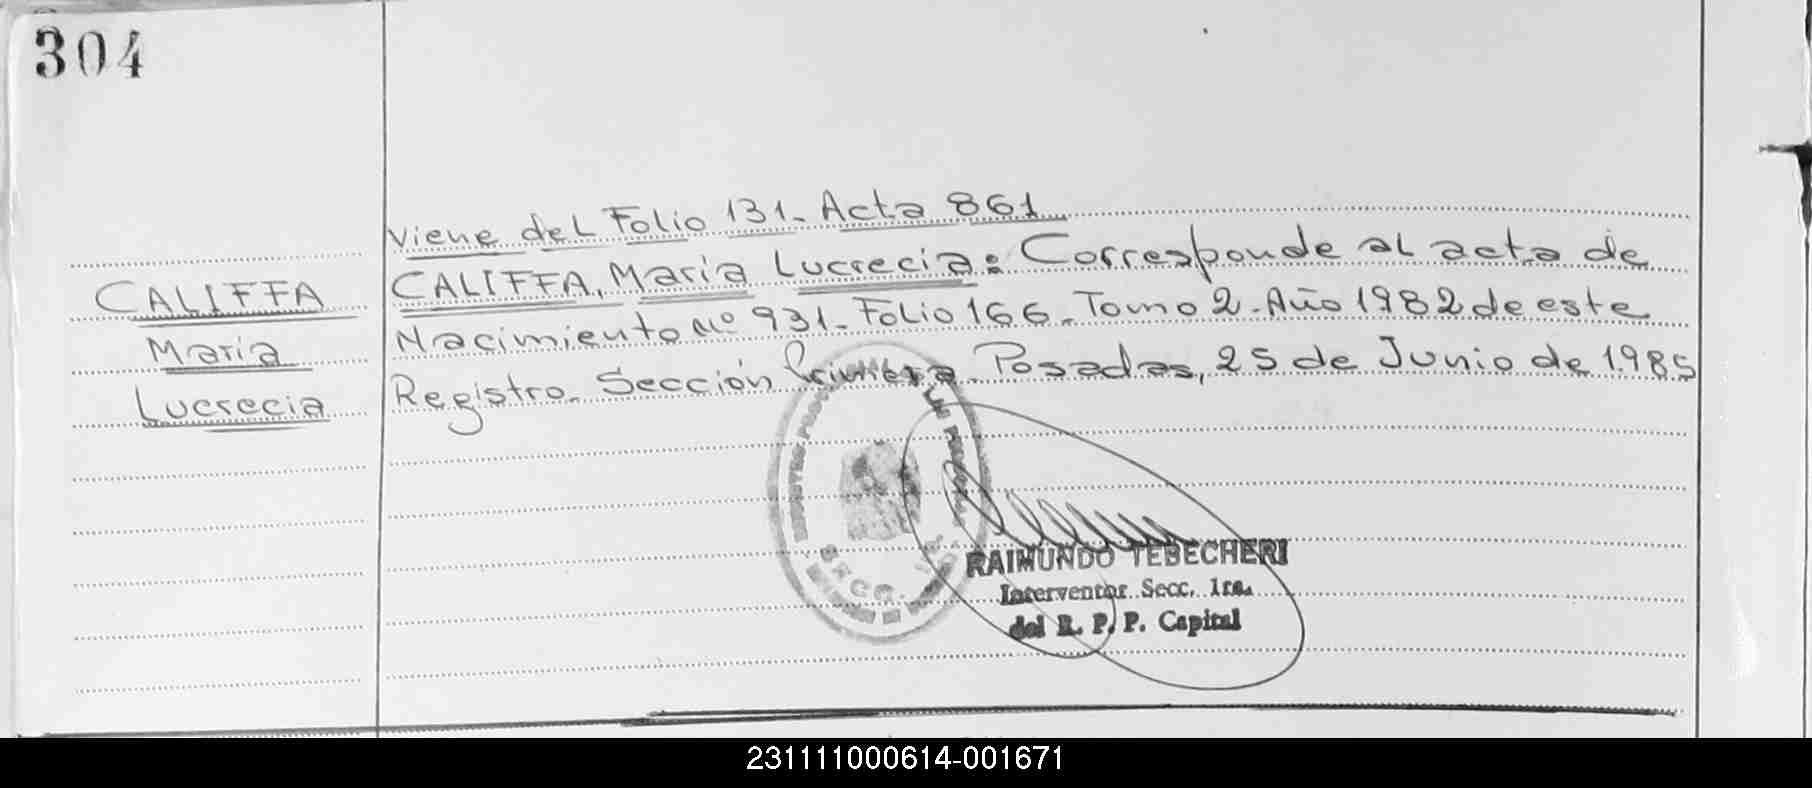 304
Viene del Folio 131. Acta 861
CALIFFA
Maria
Lucrecia
CALIFFA, Maria Lucrecia: Corresponde al acta de
Nacimiento Nº 931. Folio 166. Tomo 2. Año 1982 de este
Registro. Sección Primera. Posadas, 25 de Junio de 1985
SECC.
RAIMUNDO TEBECHERI
Interventor Secc. 1ra.
del R. P. P. Capital
231111000614-001671